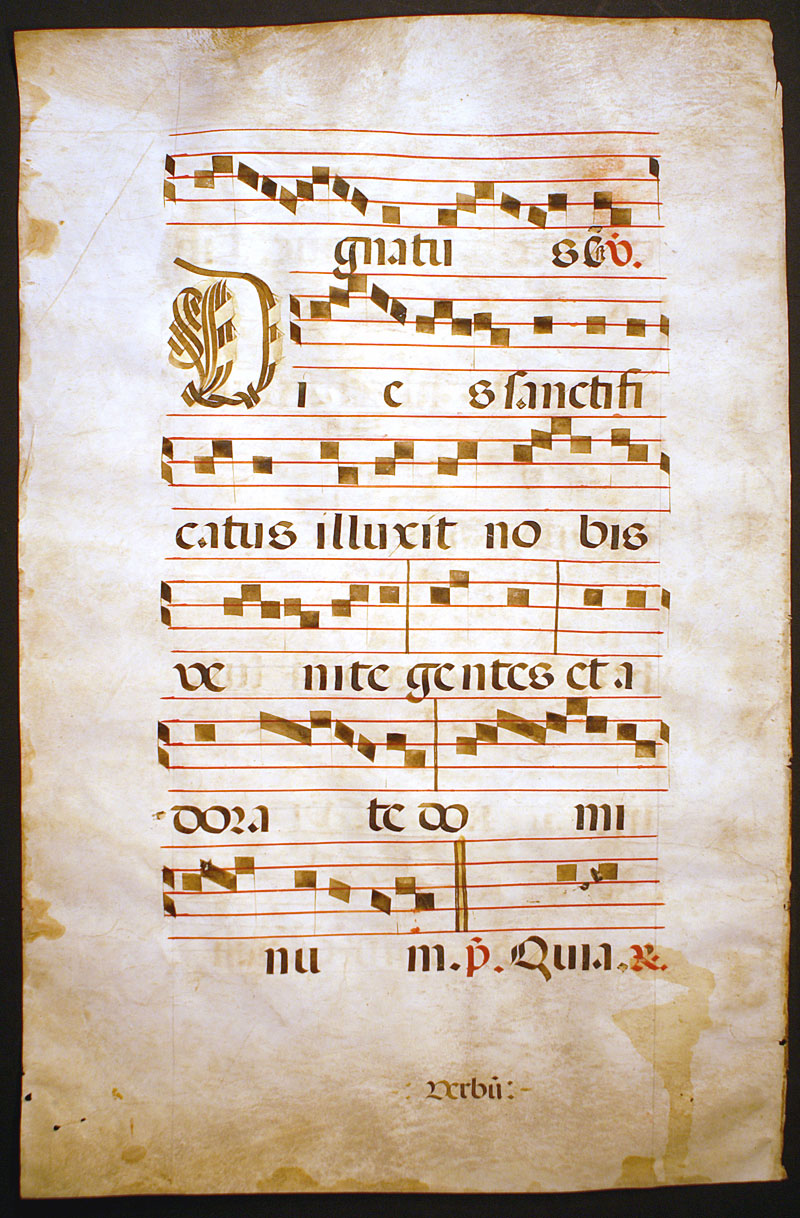 gnatu s ẽ ℣.
Di e s sanctifi
catus illuxit no bis
ve nite gentes et a
dora te do mi
nu m. p̃. Quia. ℟.
Verbũ: